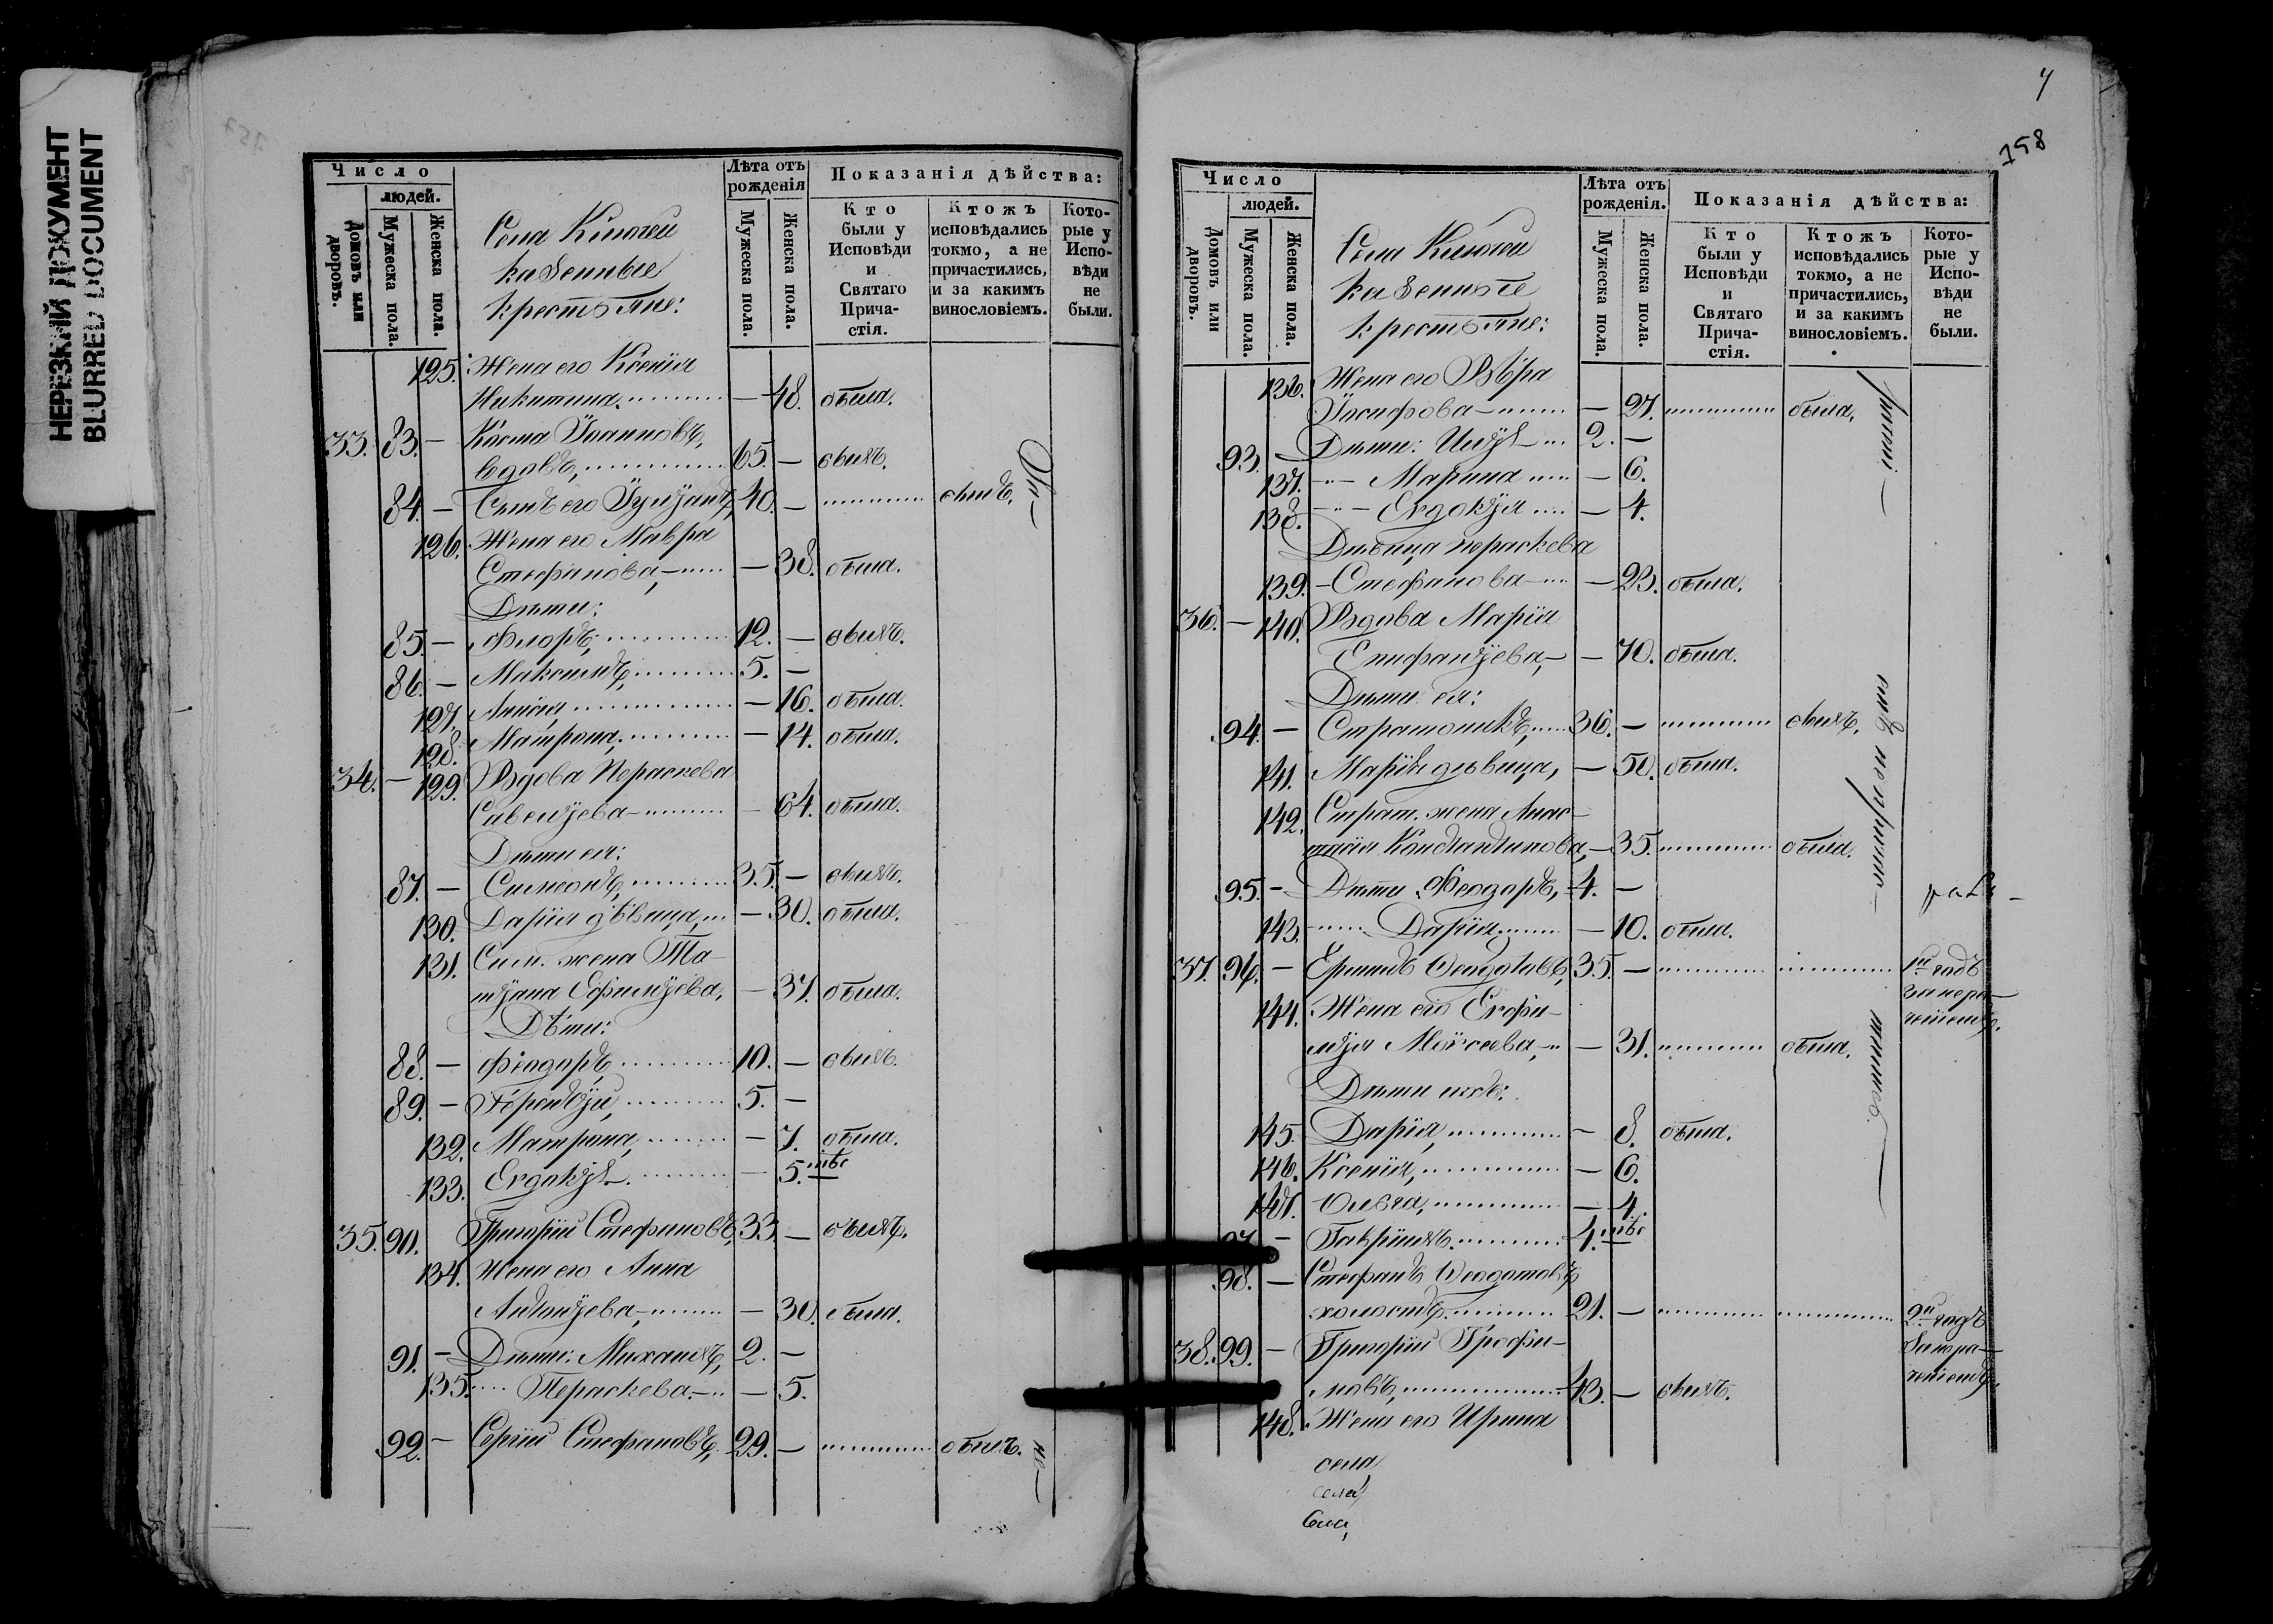 НЕРЕЗКИЙ ДОКУМЕНТ
BLURRED DOCUMENT
Число
людей.
Домовъ или дворовъ.
Мужеска пола.
Женска пола.
Села
казенные
крестьяне:
Лѣта отъ рожденія
Мужеска пола.
Женска пола.
Показанія дѣйства:
Кто были у Исповѣди и Святаго Прича-стія.
Ктожъ исповѣдались токмо, а не причастились, и за какимъ винословіемъ.
Кото-рые у Испо-вѣди не были.
125. Жена его Ксенія
Никитина — 48. была.
33. 83. — Косма Іоанновъ,
вдовъ, 65. — былъ.
84. — Сынъ его Іуліанъ, 40. — былъ.
126. Жена его Мавра
Стефанова, — 38. была.
Дѣти:
85. — Флоръ, 12. — былъ.
86. — Максимъ, 5. —
127. — 16. была.
128. Матрона, — 14. была.
34. — 129. Вдова Параскева
Савельева — 64. была.
Дѣти ея:
87. — Симеонъ, 35. — былъ.
130. Дарія дѣвица, — 30. была.
131. Сим. жена Та-
тіана Ефиміева, — 37. была.
Дѣти:
88. — Феодоръ, 10. — былъ.
89. — Терентій, 5. —
132. Матрона, — 7. была.
133. Евдокія — 5.
35. 90. Григорій Стефановъ, 33. — былъ.
134. Жена его Анна
Антоніева, — 30. была.
91. — Дѣти: Михаилъ, 2. —
135. Параскева — 5.
92. — Сергій Стефановъ, 29. — былъ.
7
758
Число
людей.
Домовъ или дворовъ.
Мужеска пола.
Женска пола.
Села
казенные
крестьяне:
Лѣта отъ рожденія.
Мужеска пола.
Женска пола.
Показанія дѣйства:
Кто были у Исповѣди и Святаго Прича-стія.
Ктожъ исповѣдались токмо, а не причастились, и за какимъ винословіемъ.
Кото-рые у Испо-вѣди не были.
136. Жена его Вѣра
Іосифова — 27. была.
93. — Дѣти: Илія 2. —
137. Марина — 6.
138. Евдокія — 4.
Дѣвица Параскева
139. Стефанова — 23. была.
36. — 140. Вдова Марія
Епифаніева, — 70. была.
Дѣти ея:
94. — Стратоникъ, 36. — былъ.
141. Марія дѣвица, — 50. была.
142. Страт. жена Анас-
тасія Константинова, — 35. была.
95. — Дѣти: Феодоръ, 4. —
143. Дарія — 10. была.
37. 96. — Ермилъ Феодотовъ, 35. — 1й годъ
за нера-
144. Жена его Евфи-
мія Моисеева, — 31. была.
Дѣти ихъ:
145. Дарія, — 8. была.
146. Ксенія, — 6.
147. Ольга, — 4.
97. — Гавріилъ 4.
98. — Стефанъ Феодотовъ
холостъ. 21. — 2й годъ
за нера-
38. 99. — Григорій Трофи-
мовъ, 43. — былъ.
148. Жена его Ирина
села
села